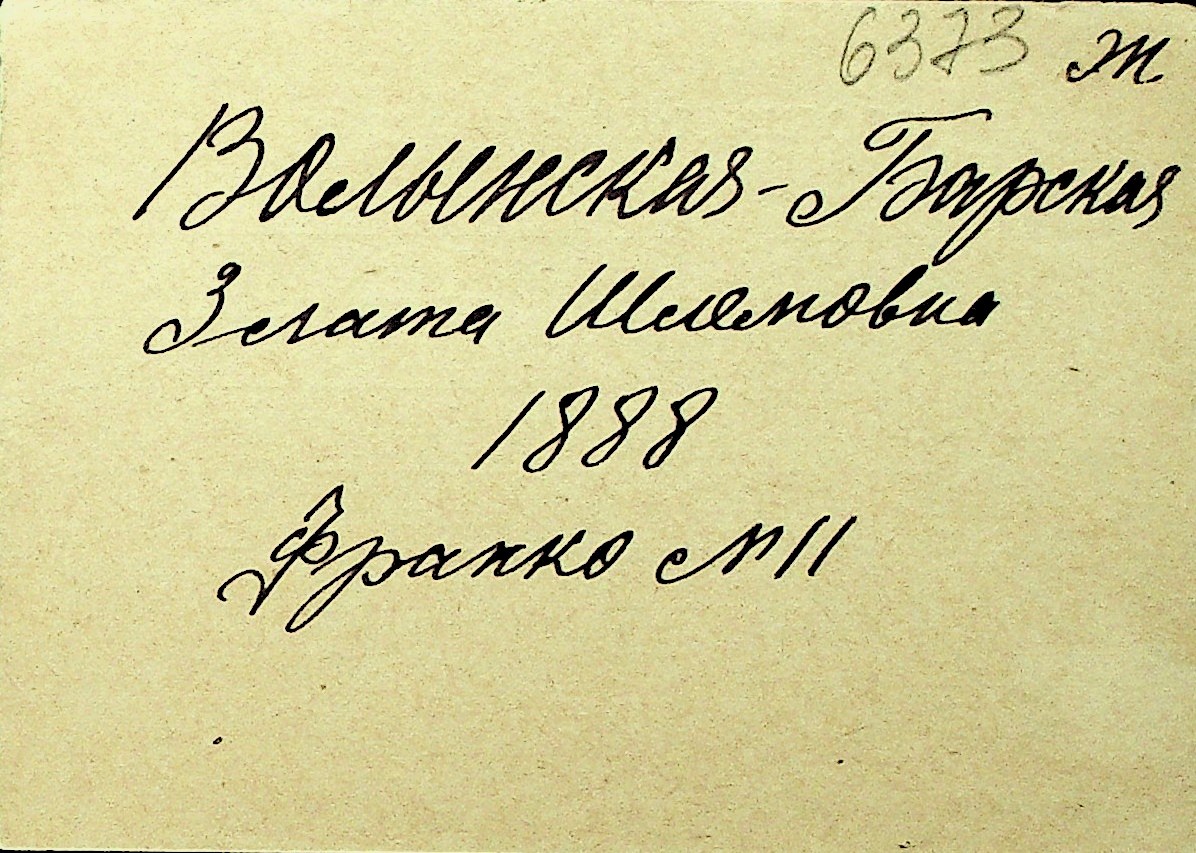 6373 ж
Волынская-Барская
Злата Шлемовна
1888
Франко № 11